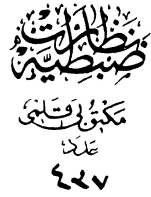 نظارت
ضبطیه
مکتوبی قلمی
عدد
٤٣٧